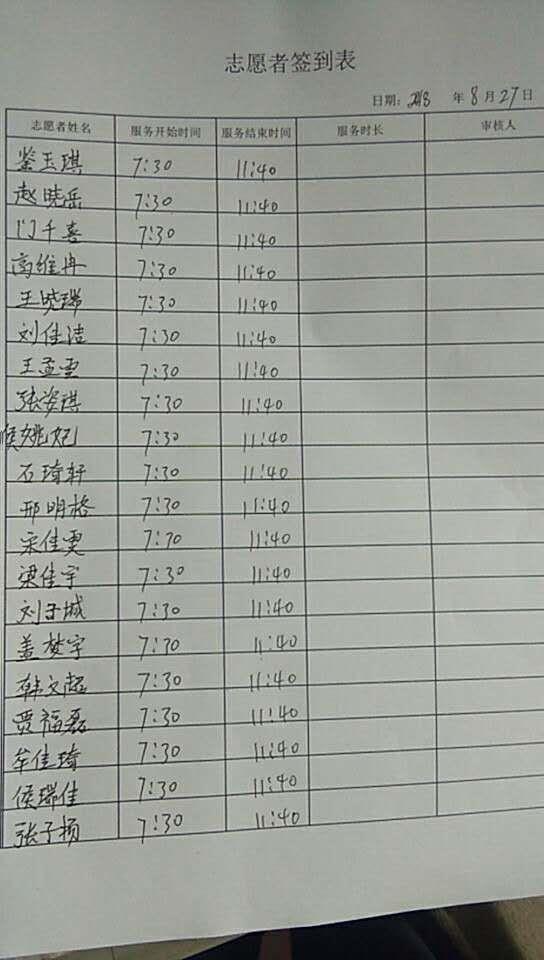 志愿者签到表
日期: 2018 年 8 月 27 日
志愿者姓名 服务开始时间 服务结束时间 服务时长 审核人
鉴玉琪 7:30 11:40
赵晓岳 7:30 11:40
门千喜 7:30 11:40
高维冉 7:30 11:40
王晓瑞 7:30 11:40
刘佳洁 7:30 11:40
王孟雪 7:30 11:40
张姿琪 7:30 11:40
侯姚妃 7:30 11:40
石琦轩 7:30 11:40
邢明格 7:30 11:40
宋佳雯 7:30 11:40
梁佳宇 7:30 11:40
刘子城 7:30 11:40
盖梦宇 7:30 11:40
韩文超 7:30 11:40
贾福磊 7:30 11:40
牟佳琦 7:30 11:40
侯瑞佳 7:30 11:40
张子杨 7:30 11:40